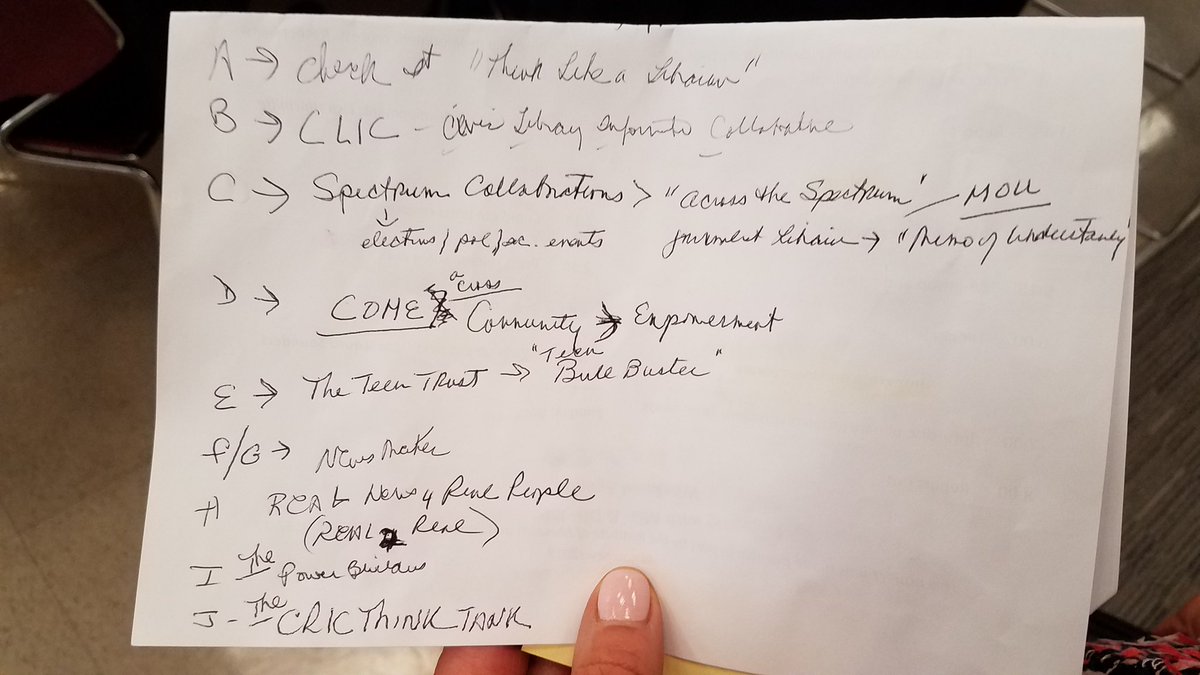 A → Check it "Think Like a Libraian"
B → CLIC - Civic Library Informatio Collaborative
C → Spectrum Collabrations > "across the Spectrum" - MOU
elections / pol/soc. events
→ "Memo of Understandy"
D → COME across Community → Empowerment
E → The Teen Trust → "Teen Bull Buster"
F/G → News Maker
H REAL News 4 Real People
(REAL 4 Real)
I The Power
J - The CRIC THINK TANK